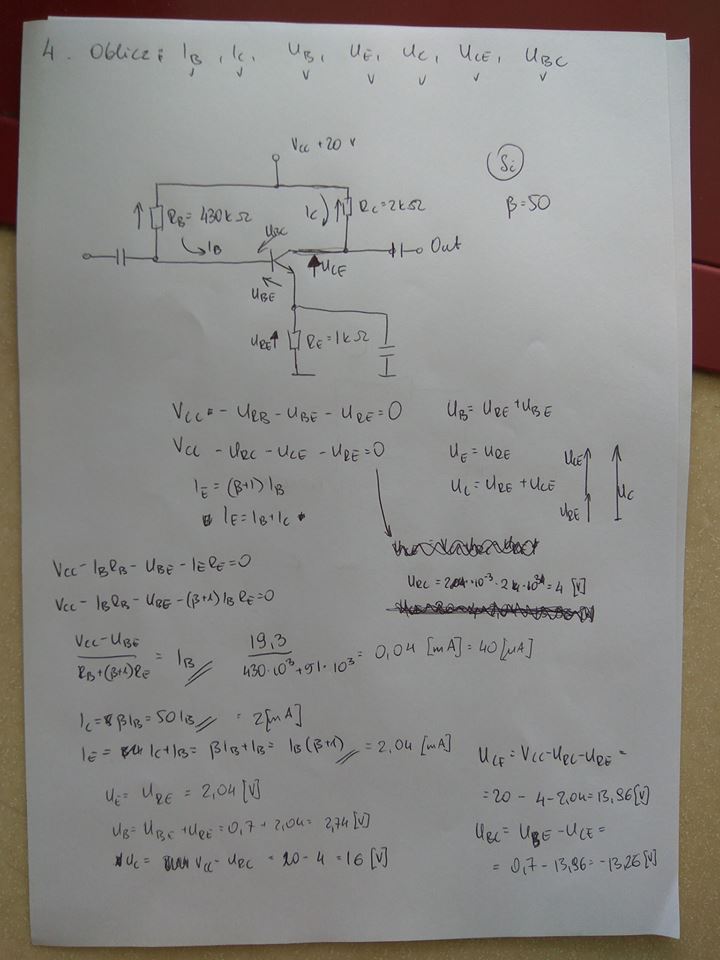 4. Oblicz: I_B, I_C, U_B, U_E, U_C, U_CE, U_BC
V_CC +20 V
Si
β=50
R_B = 430kΩ
I_C
R_C=2kΩ
U_BC
I_B
Out
U_CE
U_BE
U_RE
R_E = 1kΩ
V_CC - U_RB - U_BE - U_RE = 0
U_B = U_RE + U_BE
V_CC - U_RC - U_CE - U_RE = 0
U_E = U_RE
I_E = (β+1) I_B
U_C = U_RE + U_CE
U_CE
U_RE
U_C
I_E = I_B + I_C
V_CC - I_B R_B - U_BE - I_E R_E = 0
V_CC - I_B R_B - U_BE - (β+1) I_B R_E = 0
U_RC = 2 · 10^-3 · 2 · 10^3 = 4 [V]
(V_CC - U_BE) / (R_B + (β+1) R_E) = I_B
19,3 / (430·10^3 + 51·10^3) = 0,04 [mA] = 40 [μA]
I_C = β I_B = 50 I_B = 2 [mA]
I_E = I_C + I_B = β I_B + I_B = I_B (β+1) = 2,04 [mA]
U_E = U_RE = 2,04 [V]
U_B = U_BE + U_RE = 0,7 + 2,04 = 2,74 [V]
U_C = V_CC - U_RC = 20 - 4 = 16 [V]
U_CE = V_CC - U_RC - U_RE =
= 20 - 4 - 2,04 = 13,96 [V]
U_BC = U_BE - U_CE =
= 0,7 - 13,96 = -13,26 [V]